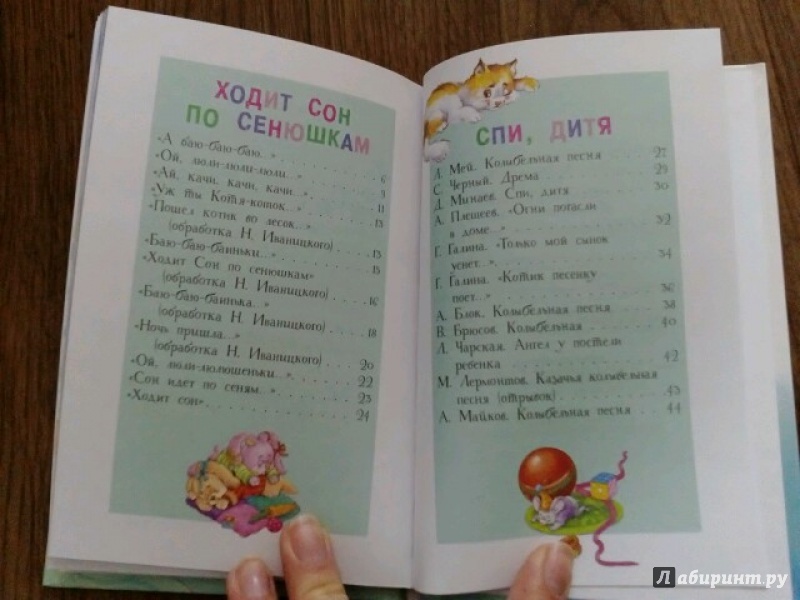 ХОДИТ СОН
ПО СЕНЮШКАМ
«А баю-баю-баю...»
«Ой, люли-люли-люли...» . . . 6
«Ай, качи, качи, качи...» . . . 9
«Уж ты Котя-коток...» . . . 11
«Пошел котик во лесок...» . . . 13
(обработка Н. Иваницкого) . . .
«Баю-баю-баиньки...» . . . 15
«Ходит Сон по сенюшкам»
(обработка Н. Иваницкого) . . . 16
«Баю-баю-баинька...»
(обработка Н. Иваницкого) . . . 18
«Ночь пришла...»
(обработка Н. Иваницкого) . . . 20
«Ой, люли-люлюшеньки...» . . . 22
«Сон идет по сеням...» . . . 23
«Ходит сон» . . . 24
СПИ, ДИТЯ
Л. Мей. Колыбельная песня . . . 27
С. Черный. Дрема . . . 29
Д. Минаев. Спи, дитя . . . 30
А. Плещеев. «Огни погасли
в доме...» . . . 32
Г. Галина. «Только мой сынок
уснет...» . . . 34
Г. Галина. «Котик песенку
поет...» . . . 36
А. Блок. Колыбельная песня . . . 38
В. Брюсов. Колыбельная . . . 40
Л. Чарская. Ангел у постели
ребенка . . . 42
М. Лермонтов. Казачья колыбельная
песня (отрывок) . . . 43
А. Майков. Колыбельная песня . . . 44
Лабиринт.ру